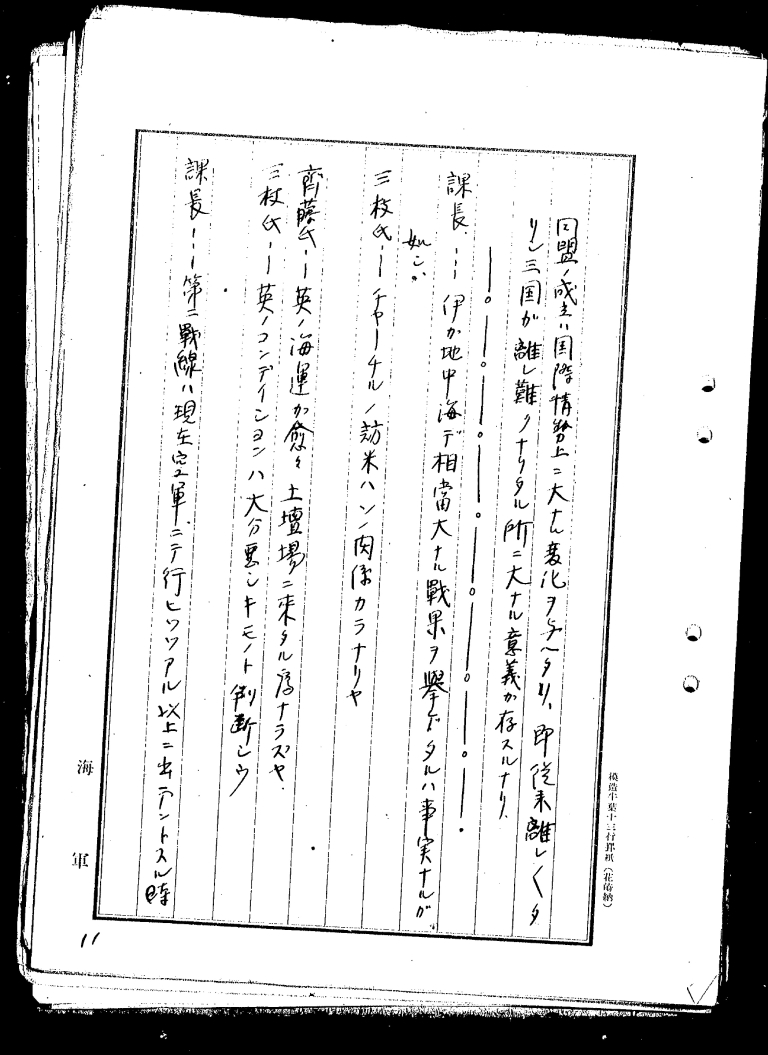 同盟ノ成立ハ国際情勢上ニ大ナル変化ヲ与ヘタリ、即従来離レ〱タ
リシ三国ガ離レ難クナリタル所ニ大ナル意義ガ存スルナリ、
課長…… 伊ガ地中海デ相當大ナル戰果ヲ擧ゲタルハ事実ナルガ、
如シカ
三枝氏ーーチャーチルノ訪米ハソノ関係カラナリヤ
齊藤氏ーー英ノ海運ガ愈々土壇場ニ来タル為ナラズヤ、
三枝氏ーー英ノコンディションハ大分悪シキモノト判断シウ
課長……第二戰線ハ現在空軍ニテ行ヒツツアル以上ニ出デントスル時
海軍
11
模造半葉十三行罫紙